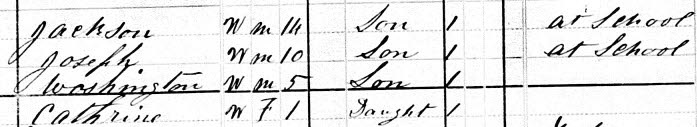 Jackson W m 14 Son 1 at School
Joseph W m 10 Son 1 at School
Washington W m 5 Son 1
Cathrine W F 1 Daught 1